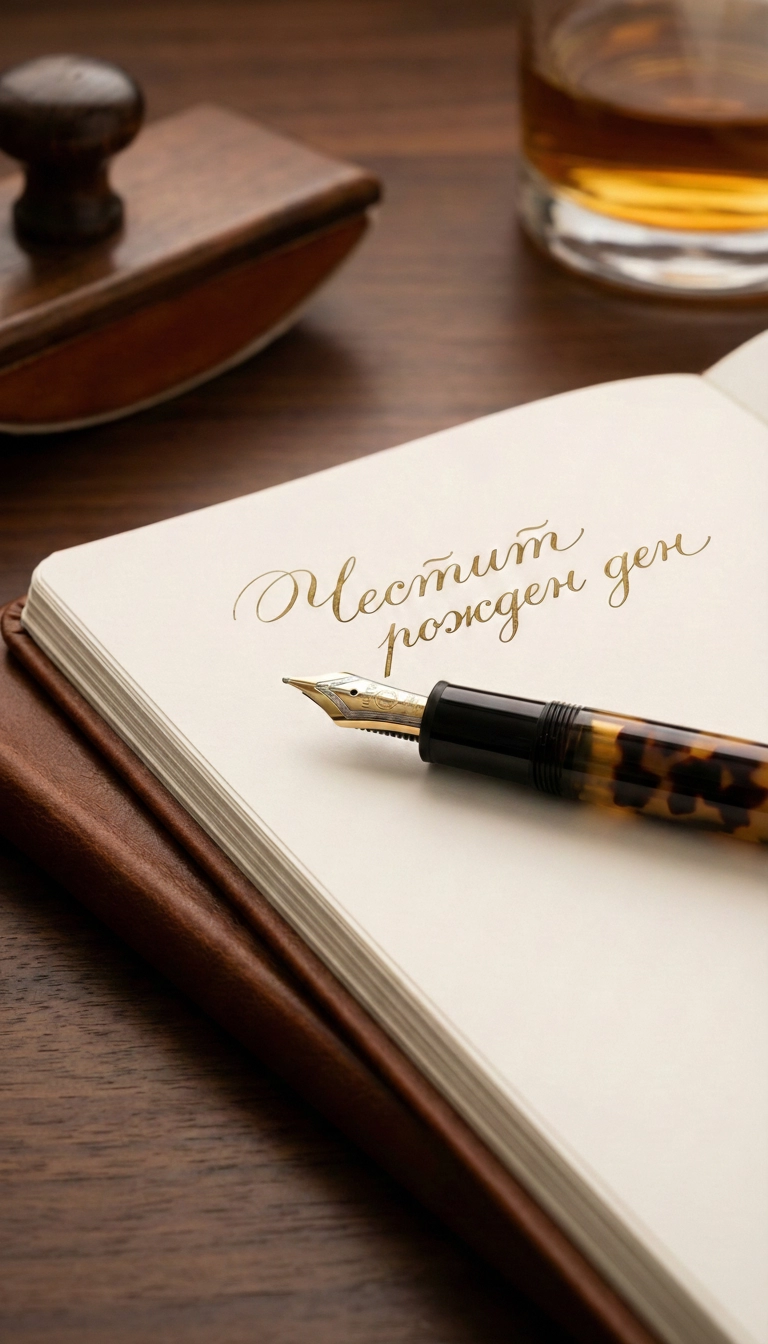 Честит
рожден ден